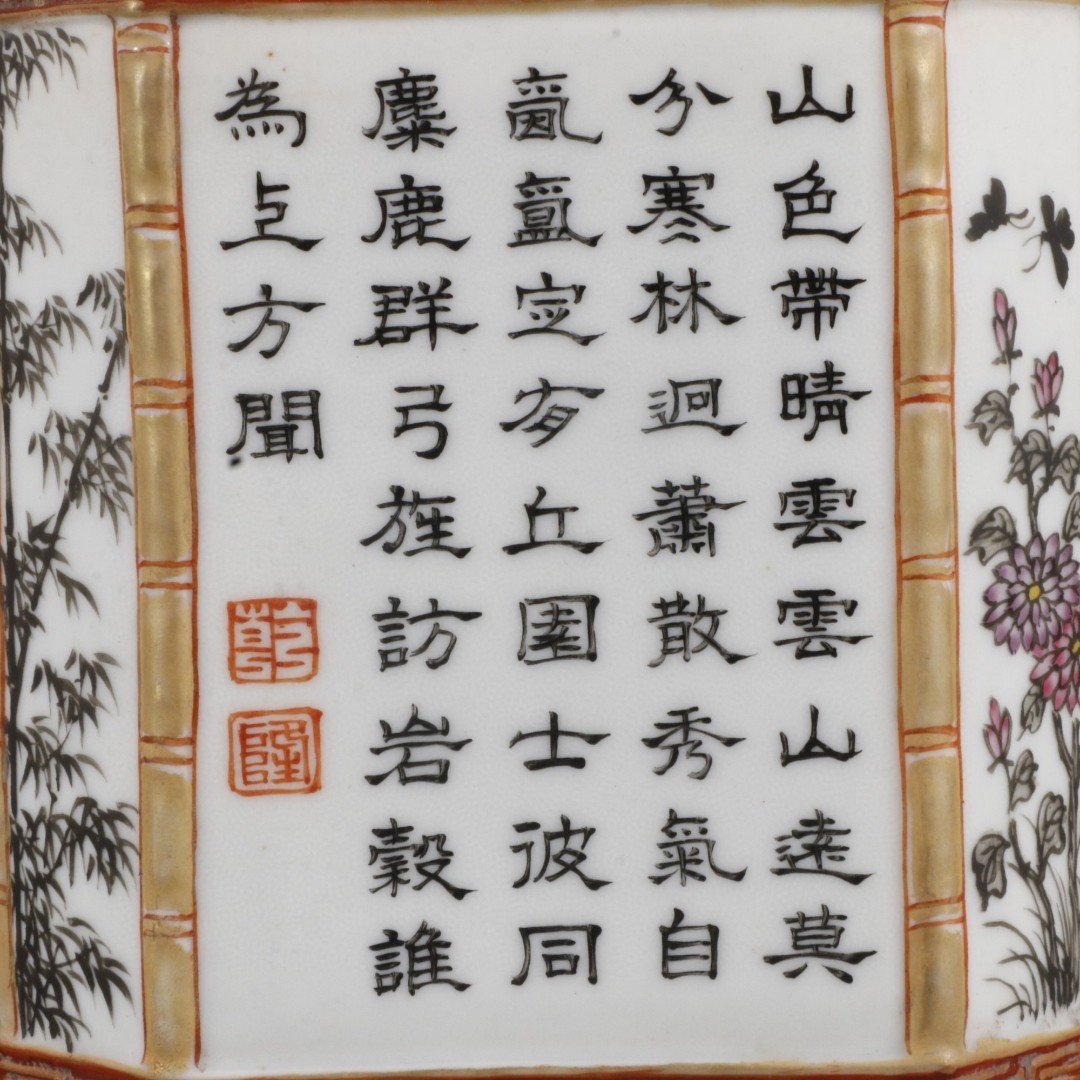 山色帶晴雲雲山遠莫
分寒林迥蕭散秀氣自
氤氳定有丘園士彼同
麋鹿群弓旌訪岩穀誰
為上方聞
乾
隆